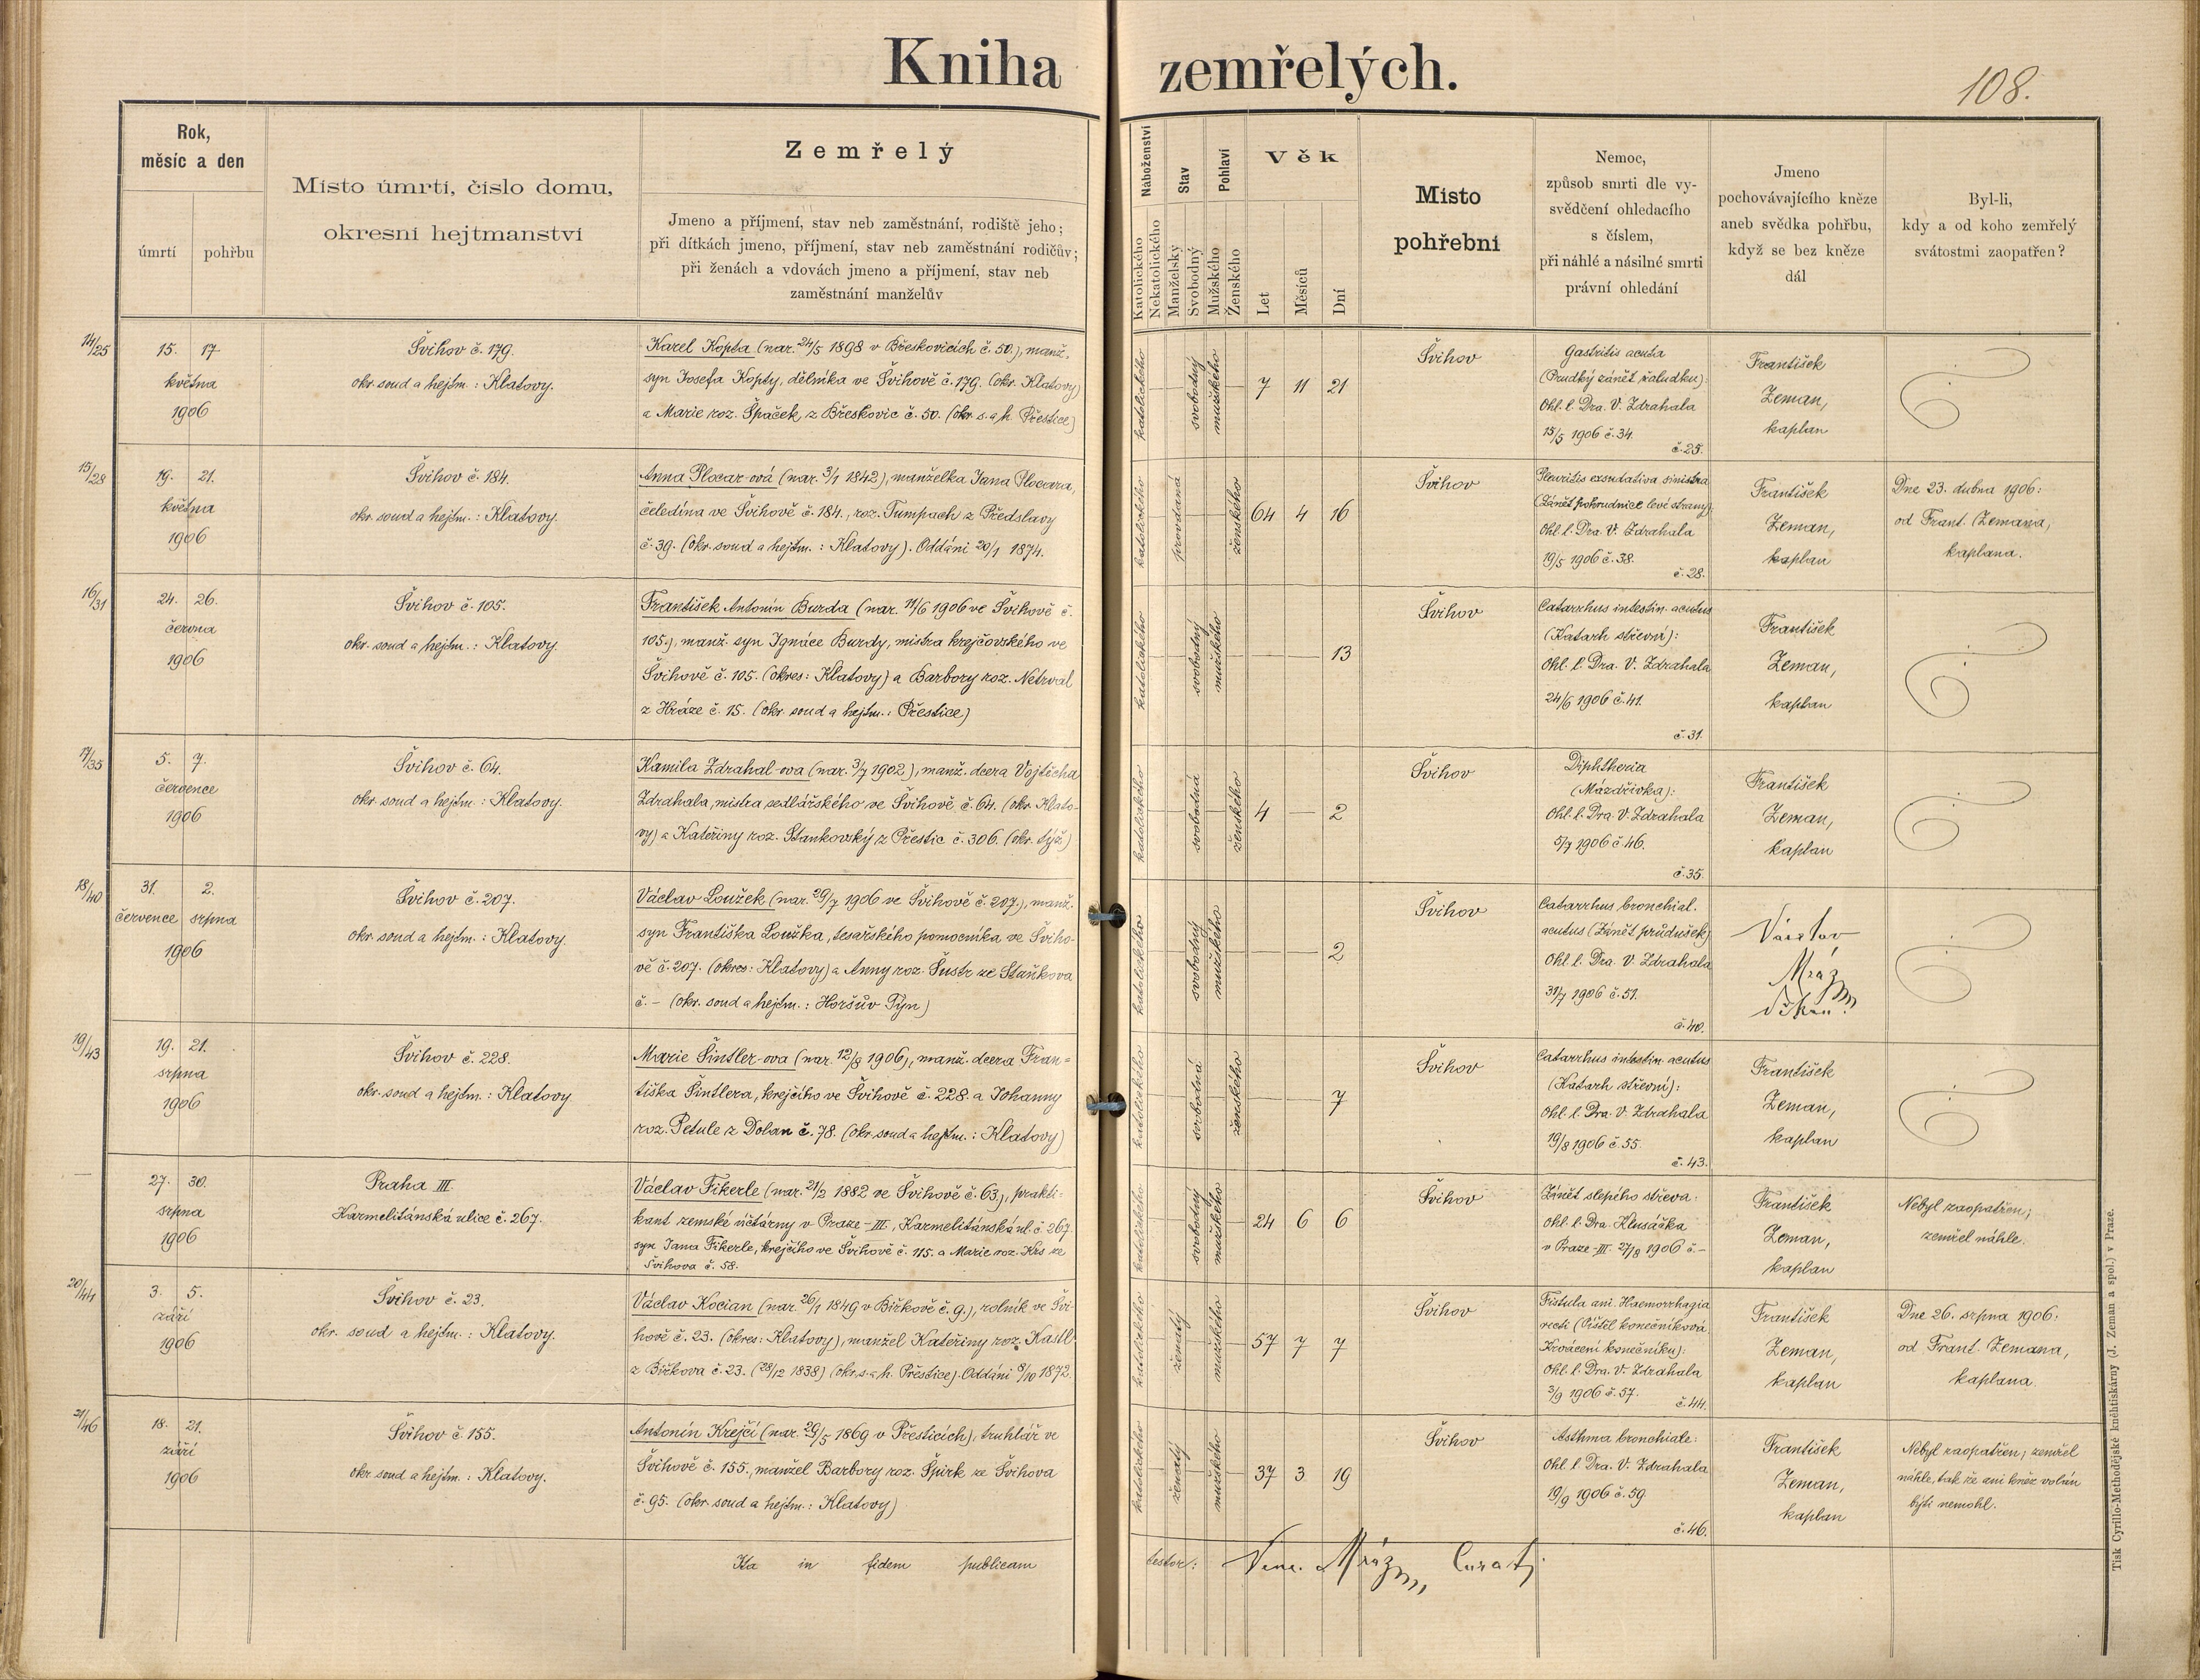 Kniha zemřelých.
108.
Rok,
měsíc a den
úmrtí
pohřbu
Místo úmrtí, číslo domu,
okresní hejtmanství
Zemřelý
Jmeno a příjmení, stav neb zaměstnání, rodiště jeho;
při dítkách jmeno, příjmení, stav neb zaměstnání rodičův;
při ženách a vdovách jmeno a příjmení, stav neb
zaměstnání manželův
Náboženství
Katolického
Nekatolického
Stav
Manželský
Svobodný
Pohlaví
Mužského
Ženského
Věk
Let
Měsíců
Dní
Místo
pohřební
Nemoc,
způsob smrti dle vy-
svědčení ohledacího
s číslem,
při náhlé a násilné smrti
právní ohledání
Jmeno
pochovávajícího kněze
aneb svědka pohřbu,
když se bez kněze
dál
Byl-li,
kdy a od koho zemřelý
svátostmi zaopatřen?
14/25
15. 17.
května
1906
Švihov č. 179.
okr. soud a hejtm.: Klatovy.
Karel Kopta (nar. 24/5 1898 v Břeskovicích č. 50.), manž.
syn Josefa Kopty, dělníka ve Švihově č. 179. (okr. Klatovy)
a Marie roz. Špaček, z Břeskovic č. 50. (okr. s. a h. Přestice)
katolického
svobodný
mužského
7 11 21
Švihov
Gastritis acuta
(Prudký zánět žaludku):
Ohl. l. Dra. V. Zdrahala
15/5 1906 č. 34.
č. 25.
František
Zeman,
kaplan
15/28
19. 21.
května
1906
Švihov č. 184.
okr. soud a hejtm.: Klatovy.
Anna Plocar-ová (nar. 3/1 1842), manželka Jana Plocara,
čeledína ve Švihově č. 184., roz. Tumpach z Předslavy
č. 39. (okr. soud a hejtm.: Klatovy). Oddáni 20/1 1874.
katolického
provdaná
ženského
64 4 16
Švihov
Pleuritis exsudativa sinistra
(Zánět pohrudnice levé strany):
Ohl. l. Dra. V. Zdrahala
19/5 1906 č. 38.
č. 28.
František
Zeman,
kaplan
Dne 23. dubna 1906:
od Frant. Zemana,
kaplana.
16/31
24. 26.
června
1906
Švihov č. 105.
okr. soud a hejtm.: Klatovy.
František Antonín Burda (nar. 11/6 1906 ve Švihově č.
105.), manž. syn Ignáce Burdy, mistra krejčovského ve
Švihově č. 105. (okres: Klatovy) a Barbory roz. Netrval
z Hráze č. 15. (okr. soud a hejtm.: Přestice)
katolického
svobodný
mužského
13
Švihov
Catarrhus intestin. acutus
(Katarh střevní):
Ohl. l. Dra. V. Zdrahala
24/6 1906 č. 41.
č. 31.
František
Zeman,
kaplan
17/35
5. 7.
července
1906
Švihov č. 64.
okr. soud a hejtm.: Klatovy.
Kamila Zdrahal-ova (nar. 3/7 1902), manž. dcera Vojtěcha
Zdrahala, mistra sedlářského ve Švihově č. 64. (okr. Klato-
vy) a Kateřiny roz. Stankovský z Přestic č. 306. (okr. týž)
katolického
svobodná
ženského
4 — 2
Švihov
Diphtheria
(Mázdřivka):
Ohl. l. Dra. V. Zdrahala
5/7 1906 č. 46.
č. 35.
František
Zeman,
kaplan
18/40
31. 2.
července srpna
1906
Švihov č. 207.
okr. soud a hejtm.: Klatovy.
Václav Loužek (nar. 29/7 1906 ve Švihově č. 207.), manž.
syn Františka Loužka, tesařského pomocníka ve Šviho-
vě č. 207. (okres: Klatovy) a Anny roz. Šustr ze Staňkova
č. – (okr. soud a hejtm.: Horšův Týn)
katolického
svobodný
mužského
2
Švihov
Catarrhus bronchial.
acutus (Zánět průdušek)
Ohl. l. Dra. V. Zdrahala
31/7 1906 č. 51.
č. 40.
Václav
Mráz
děkan
19/43
19. 21.
srpna
1906
Švihov č. 228.
okr. soud a hejtm.: Klatovy
Marie Šintler-ova (nar. 12/8 1906), manž. dcera Fran-
tiška Šintlera, krejčího ve Švihově č. 228. a Johanny
roz. Petule z Dolan č. 78. (okr. soud a hejtm.: Klatovy)
katolického
svobodná
ženského
7
Švihov
Catarrhus intestin. acutus
(Katarh střevní):
Ohl. l. Dra. V. Zdrahala
19/8 1906 č. 55.
č. 43.
František
Zeman,
kaplan
—
27. 30.
srpna
1906
Praha III.
Karmelitánská ulice č. 267.
Václav Fikerle (nar. 21/2 1882 ve Švihově č. 63.), prakti-
kant zemské účtárny v Praze-III, Karmelitánská ul. č. 267.
syn Jana Fikerle, krejčího ve Švihově č. 115. a Marie roz. Krs ze
Švihova č. 58.
katolického
svobodný
mužského
24 6 6
Švihov
Zánět slepého střeva:
Ohl. l. Dra. Klusáčka
v Praze-III. 27/8 1906 č. –
František
Zeman,
kaplan
Nebyl zaopatřen;
zemřel náhle.
20/44
3. 5.
září
1906
Švihov č. 23.
okr. soud a hejtm.: Klatovy.
Václav Kocian (nar. 26/1 1849 v Biřkově č. 9.), rolník ve Švi-
hově č. 23. (okres: Klatovy), manžel Kateřiny roz. Kastl
z Biřkova č. 23. (28/12 1838) (okr. s. a h. Přestice). Oddáni 8/10 1872.
katolického
ženatý
mužského
57 7 7
Švihov
Fistula ani. Haemorrhagia
recti (Píštěl konečníková
Krvácení konečníku):
Ohl. l. Dra. V. Zdrahala
3/9 1906 č. 57.
č. 44.
František
Zeman,
kaplan
Dne 26. srpna 1906:
od Frant. Zemana,
kaplana.
21/46
18. 21.
září
1906
Švihov č. 155.
okr. soud a hejtm.: Klatovy.
Antonín Krejčí (nar. 29/5 1869 v Přesticích), truhlář ve
Švihově č. 155., manžel Barbory roz. Špirk ze Švihova
č. 95. (okr. soud a hejtm.: Klatovy)
katolického
ženatý
mužského
37 3 19
Švihov
Asthma bronchiale:
Ohl. l. Dra. V. Zdrahala
19/9 1906 č. 59
č. 46.
František
Zeman,
kaplan
Nebyl zaopatřen; zemřel
náhle, tak že ani kněz volán
býti nemohl.
Ita in fidem publicam testor: Venc. Mráz
Tisk Cyrillo-Methodějské knihtiskárny (J. Zeman a spol.) v Praze.